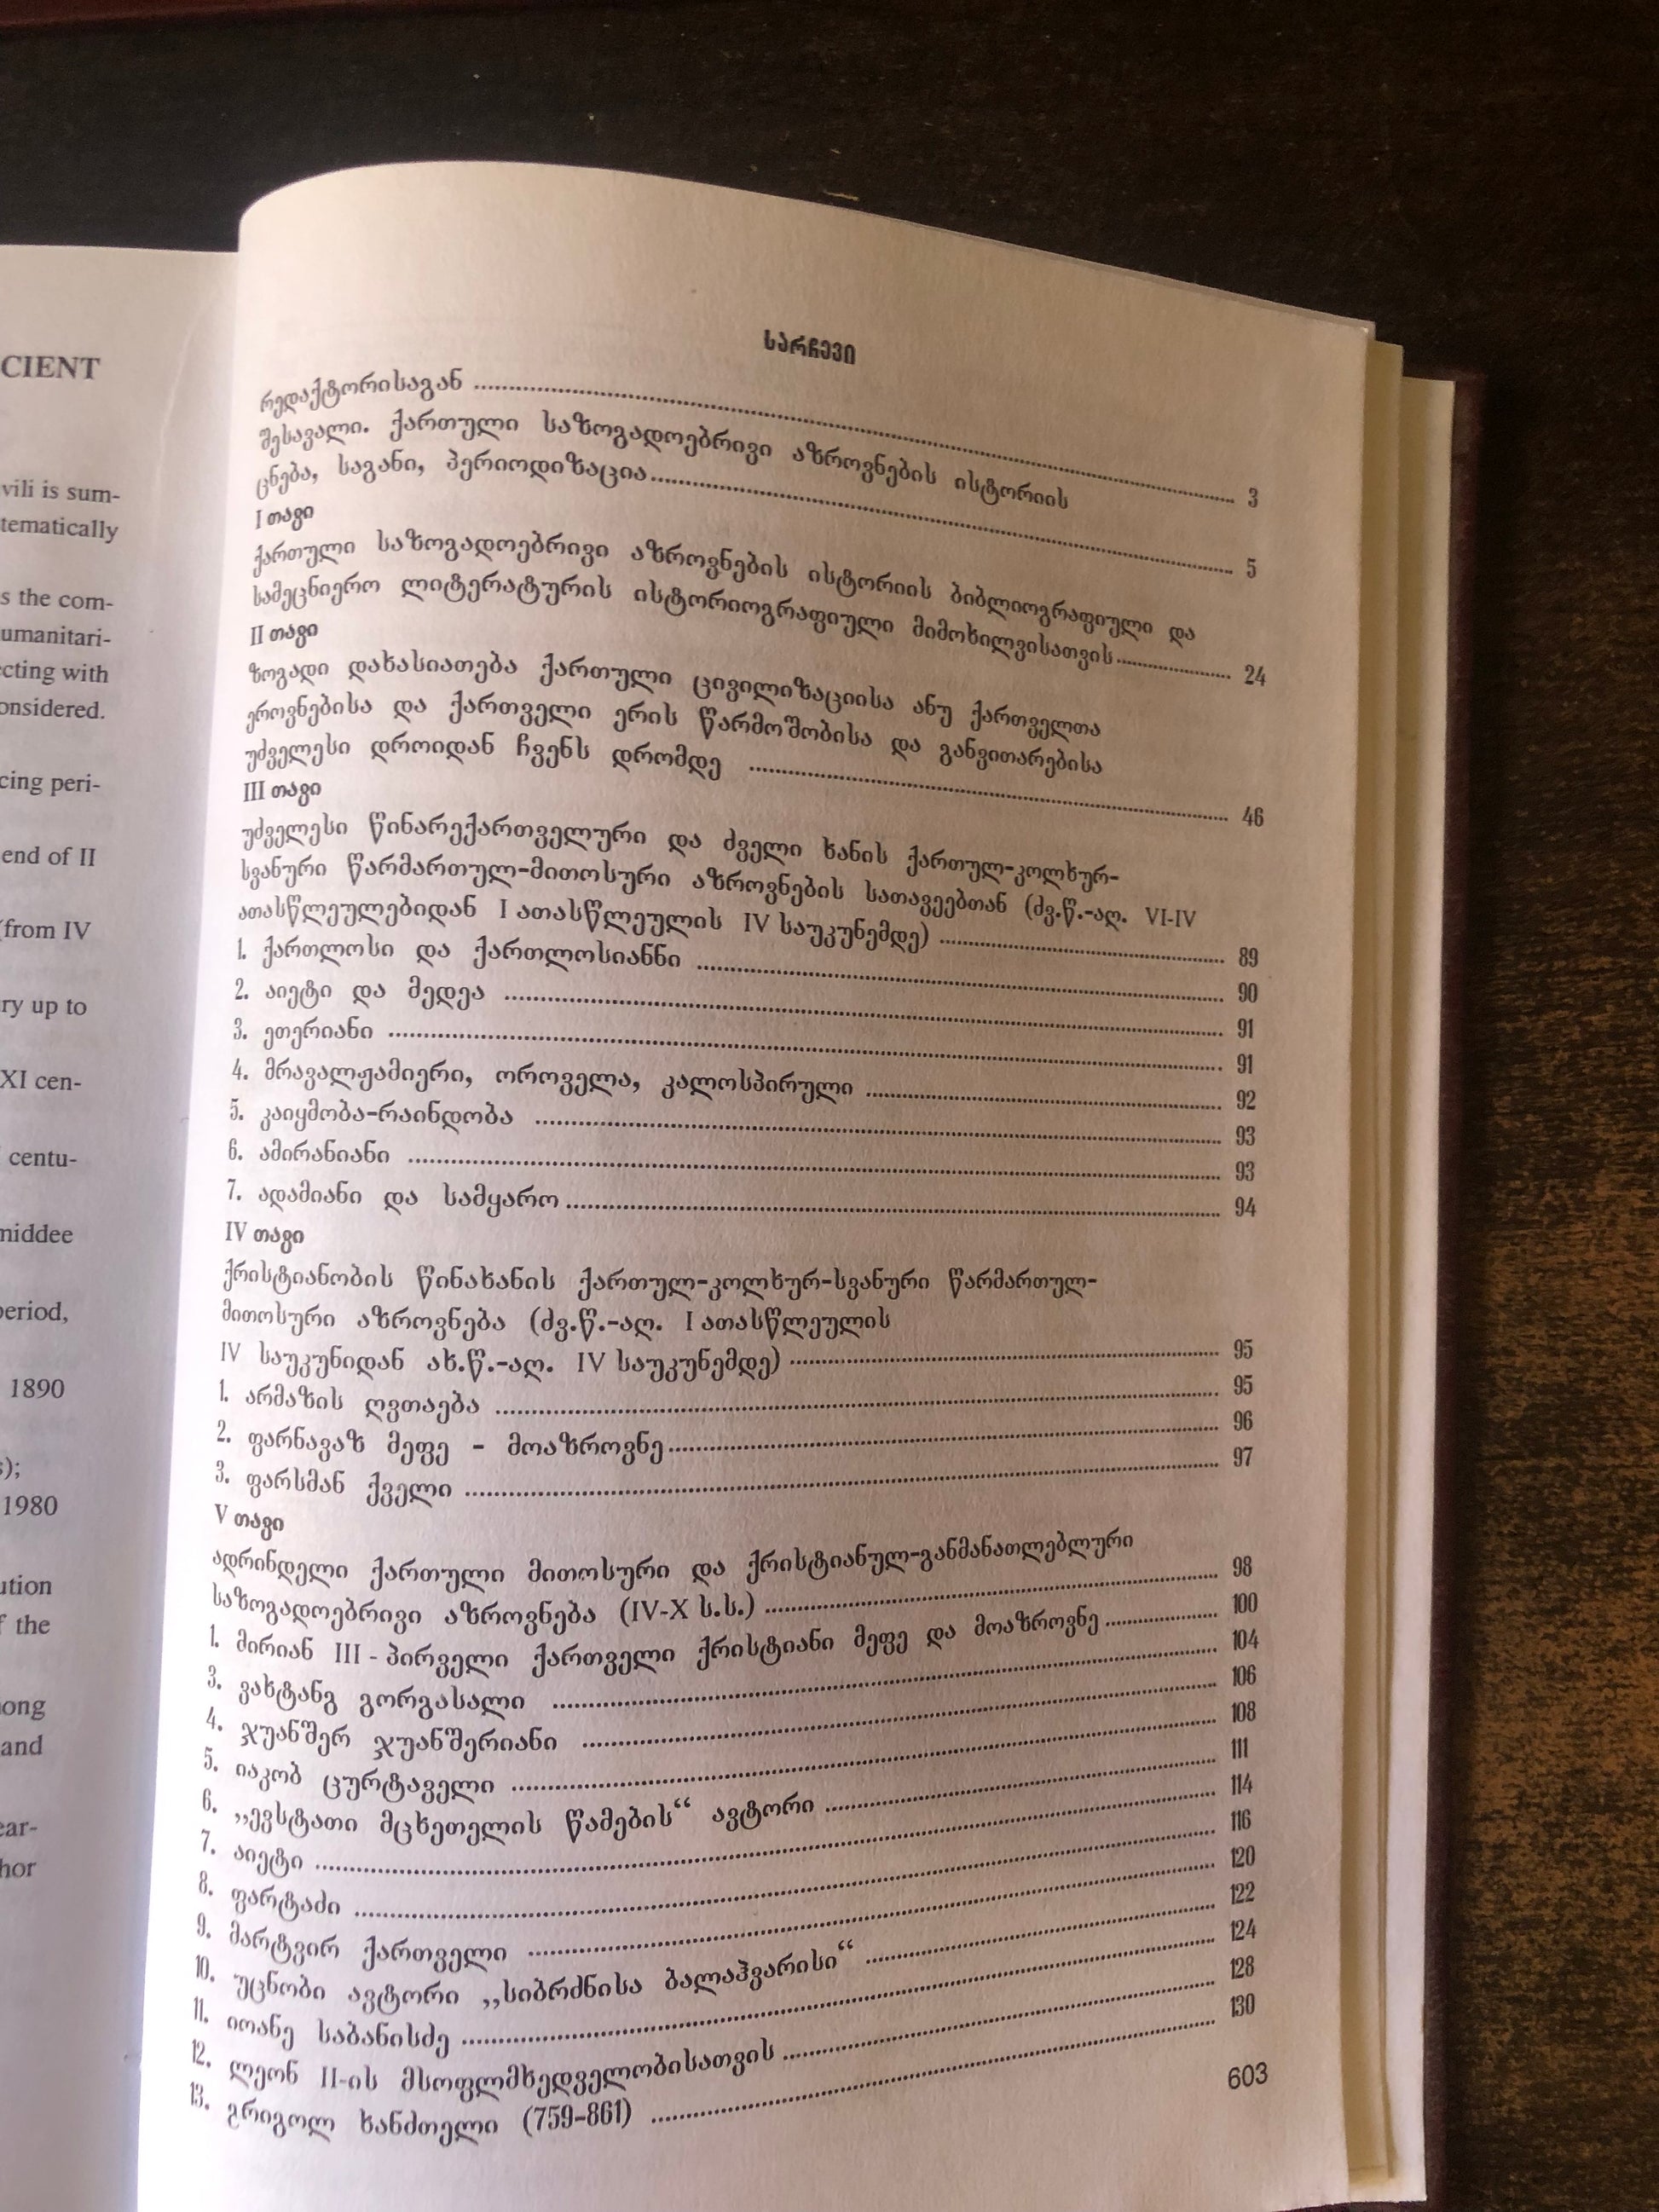 CIENT
vili is sum-
tematically
s the com-
umanitari-
cting with
onsidered.
cing peri-
end of II
(from IV
ry up to
XI cen-
centu-
middee
period,
1890
s);
1980
ution
f the
ong
and
ear-
hor
სარჩევი
რედაქტორისაგან ........ 3
შესავალი. ქართული საზოგადოებრივი აზროვნების ისტორიის
ცნება, საგანი, პერიოდიზაცია ........ 5
I თავი
ქართული საზოგადოებრივი აზროვნების ისტორიის ბიბლიოგრაფიული და
სამეცნიერო ლიტერატურის ისტორიოგრაფიული მიმოხილვისათვის ........ 24
II თავი
ზოგადი დახასიათება ქართული ცივილიზაციისა ანუ ქართველთა
ეროვნებისა და ქართველი ერის წარმოშობისა და განვითარებისა
უძველესი დროიდან ჩვენს დრომდე ........ 46
III თავი
უძველესი წინარექართველური და ძველი ხანის ქართულ-კოლხურ-
სვანური წარმართულ-მითოსური აზროვნების სათავეებთან (ძვ.წ.-აღ. VI-IV
ათასწლეულებიდან I ათასწლეულის IV საუკუნემდე) ........ 89
1. ქართლოსი და ქართლოსიანნი ........ 90
2. აიეტი და მედეა ........ 91
3. ეთერიანი ........ 91
4. მრავალჟამიერი, ოროველა, კალოსპირული ........ 92
5. კაიყმობა-რაინდობა ........ 93
6. ამირანიანი ........ 93
7. ადამიანი და სამყარო ........ 94
IV თავი
ქრისტიანობის წინახანის ქართულ-კოლხურ-სვანური წარმართულ-
მითოსური აზროვნება (ძვ.წ.-აღ. I ათასწლეულის
IV საუკუნიდან ახ.წ.-აღ. IV საუკუნემდე) ........ 95
1. არმაზის ღვთაება ........ 95
2. ფარნავაზ მეფე - მოაზროვნე ........ 96
3. ფარსმან ქველი ........ 97
V თავი
ადრინდელი ქართული მითოსური და ქრისტიანულ-განმანათლებლური
საზოგადოებრივი აზროვნება (IV-X ს.ს.) ........ 98
1. მირიან III - პირველი ქართველი ქრისტიანი მეფე და მოაზროვნე ........ 100
3. ვახტანგ გორგასალი ........ 104
4. ჯუანშერ ჯუანშერიანი ........ 106
5. იაკობ ცურტაველი ........ 108
6. „ევსტათი მცხეთელის წამების“ ავტორი ........ 111
7. აიეტი ........ 114
8. ფარტაძი ........ 116
9. მარტვირ ქართველი ........ 120
10. უცნობი ავტორი „სიბრძნისა ბალაჰვარისი“ ........ 122
11. იოანე საბანისძე ........ 124
12. ლეონ II-ის მსოფლმხედველობისათვის ........ 128
13. გრიგოლ ხანძთელი (759-861) ........ 130
603